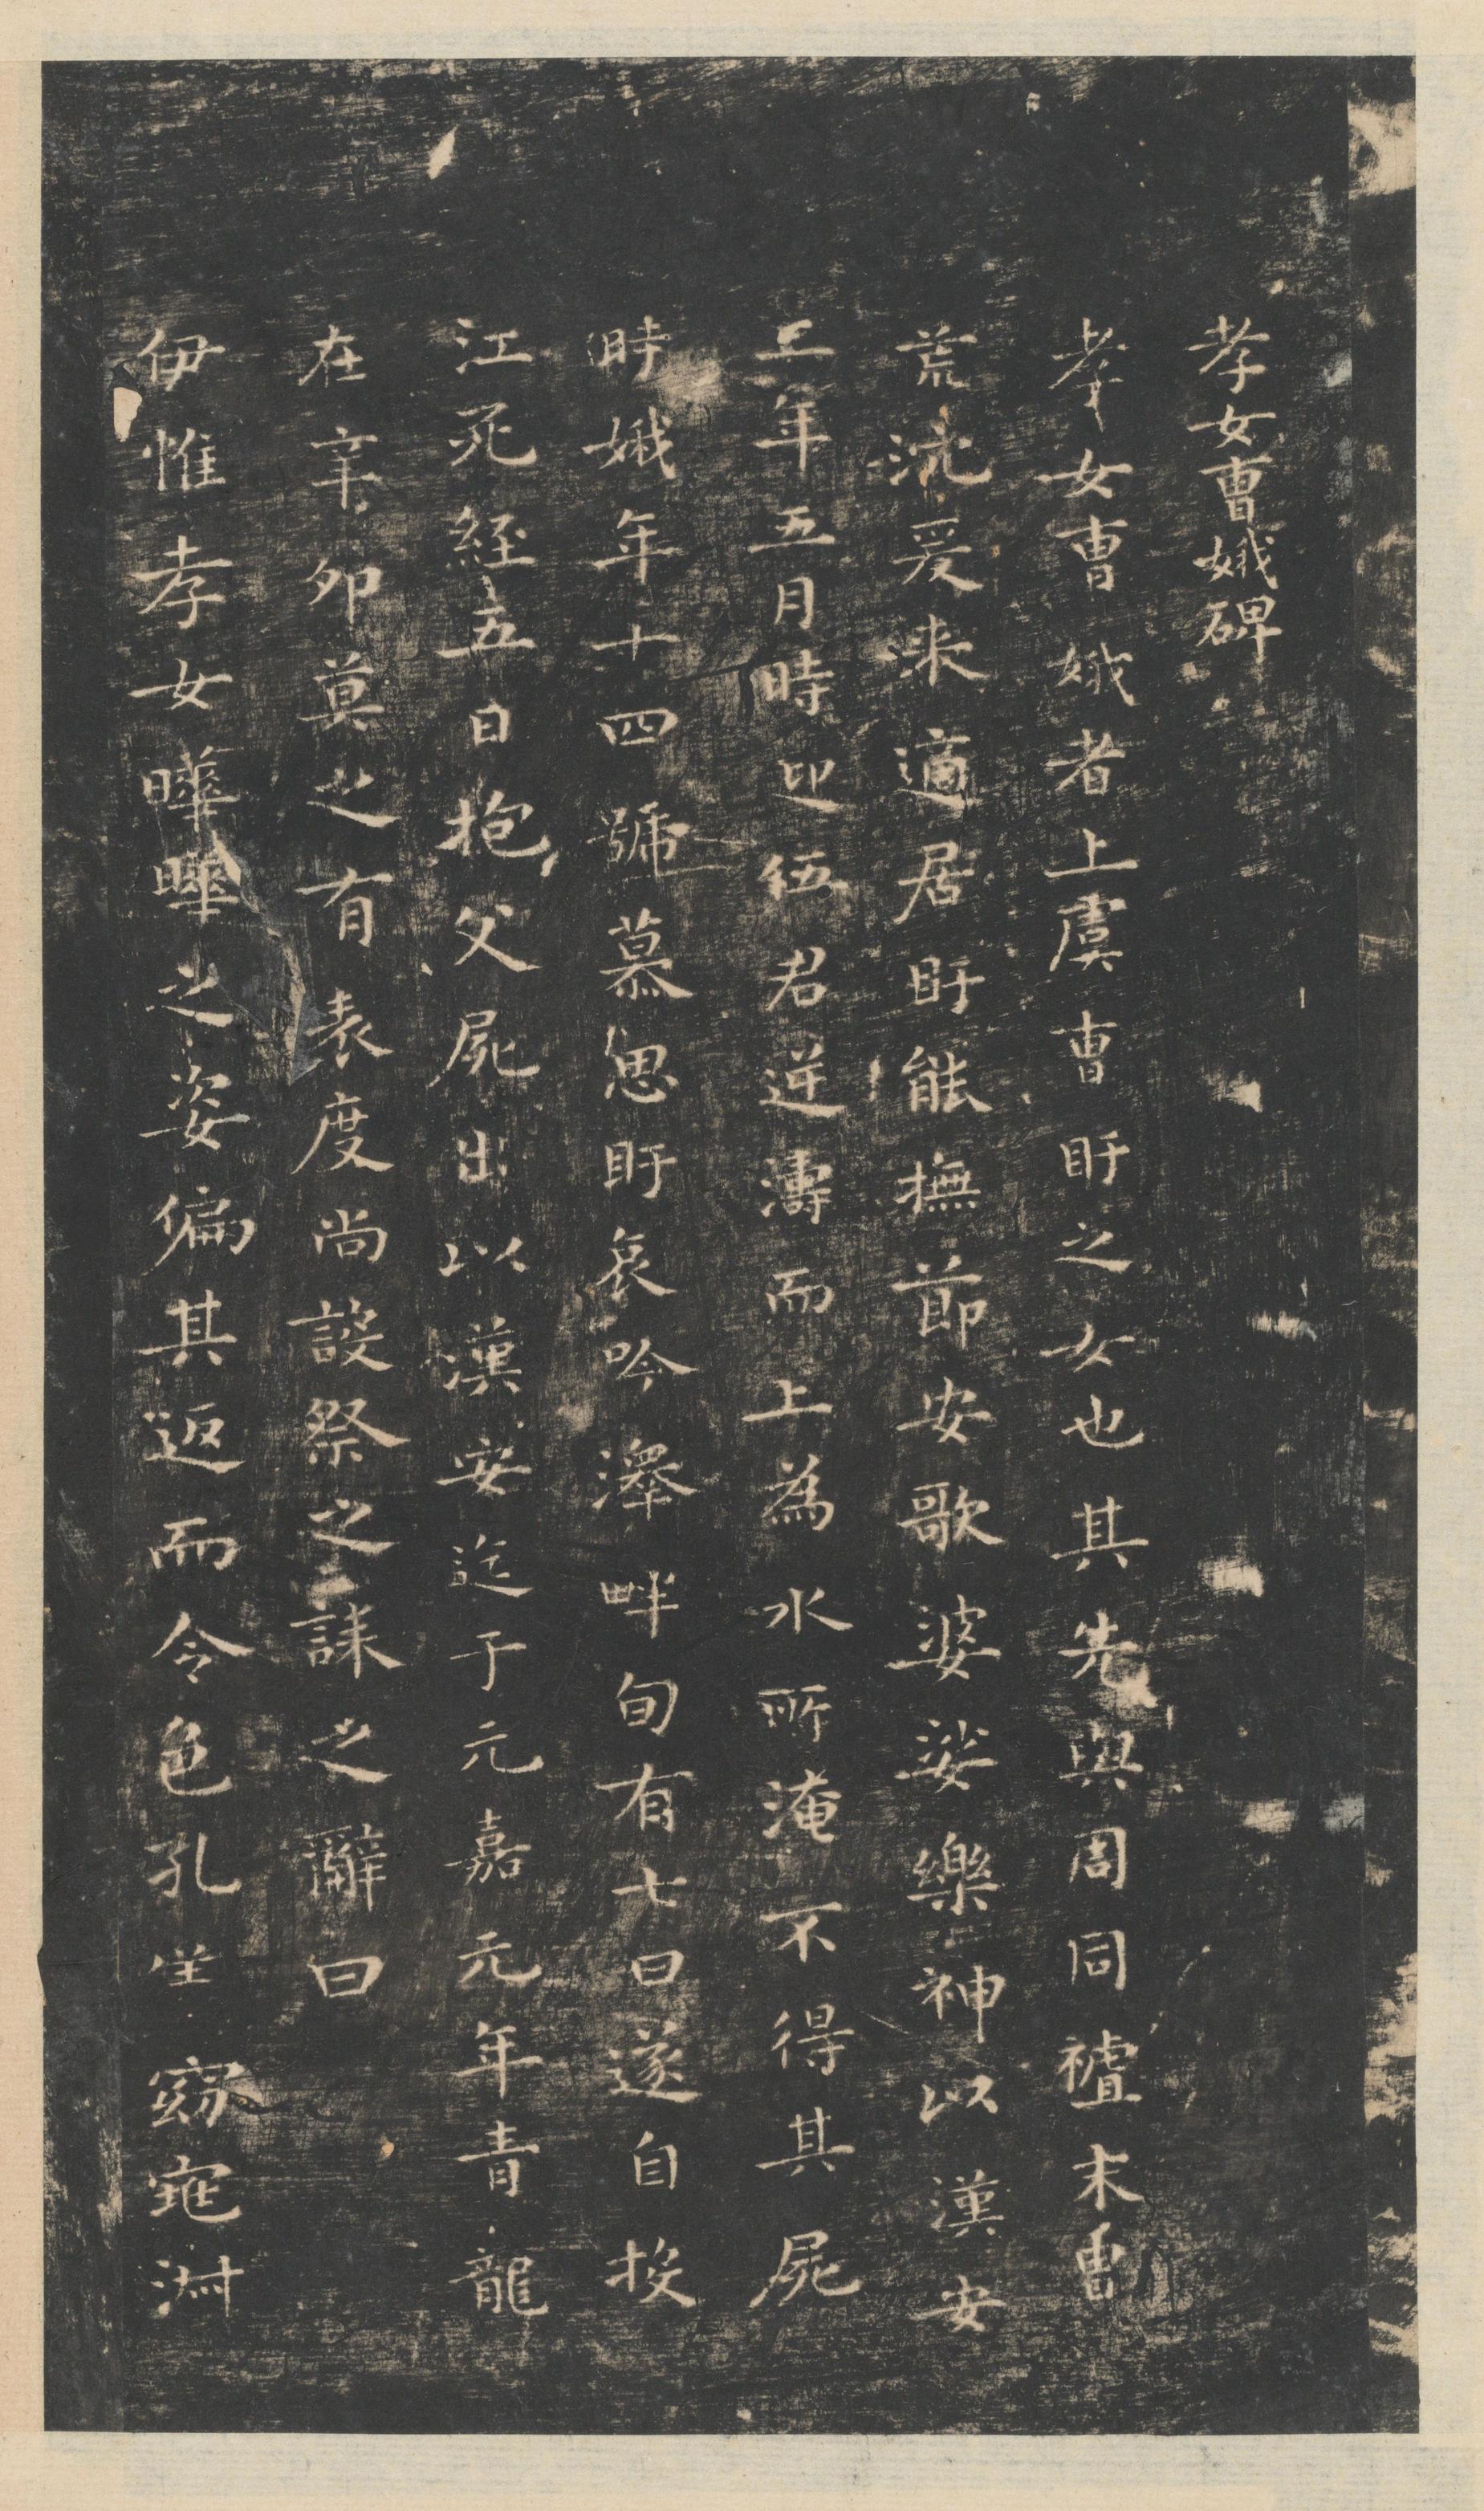 孝女曹娥碑
孝女曹娥者上虞曹盱之女也其先與周同祖末曹
荒沉爰来適居盱能撫節安歌婆娑樂神以漢安
二年五月時迎伍君逆濤而上為水所淹不得其屍
時娥年十四號慕思盱哀吟澤畔旬有七日遂自投
江死経五日抱父屍出以漢安迄于元嘉元年青龍
在辛卯莫之有表度尚設祭之誄之辭曰
伊惟孝女曄曄之姿偏其返而令色孔𡸁窈窕淑